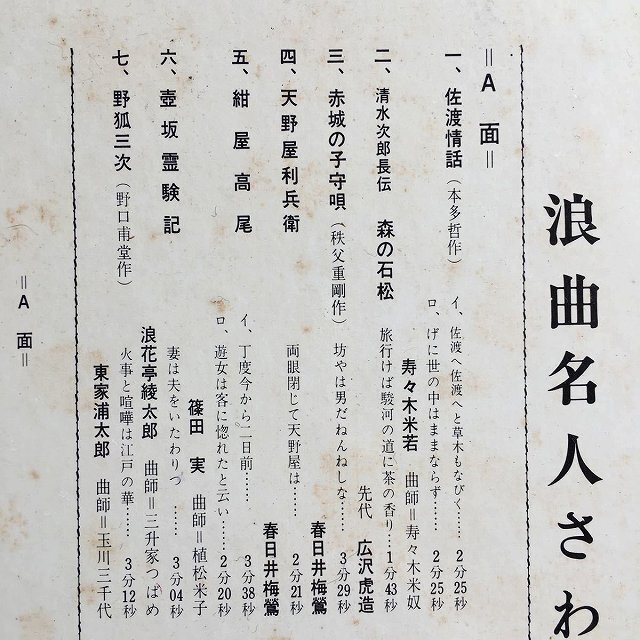 浪曲名人さわ
＝A 面＝
一、佐渡情話（本多哲作）
イ、佐渡へ佐渡へと草木もなびく…… 2分25秒
ロ、げに世の中はままならず…… 2分25秒
寿々木米若 曲師＝寿々木米奴
二、清水次郎長伝 森の石松
旅行けば駿河の道に茶の香り… 1分43秒
先代 広沢虎造
三、赤城の子守唄（秩父重剛作）
坊やは男だねんねしな…… 3分29秒
春日井梅鶯
四、天野屋利兵衛
両眼閉じて天野屋は…… 2分21秒
春日井梅鶯
五、紺屋高尾
イ、丁度今から二日前…… 3分38秒
ロ、遊女は客に惚れたと云い…… 2分20秒
篠田 実 曲師＝植松米子
六、壺坂霊験記
妻は夫をいたわりつ…… 3分04秒
浪花亭綾太郎 曲師＝三升家つばめ
七、野狐三次（野口甫堂作）
火事と喧嘩は江戸の華…… 3分12秒
東家浦太郎 曲師＝玉川三千代
＝A 面＝